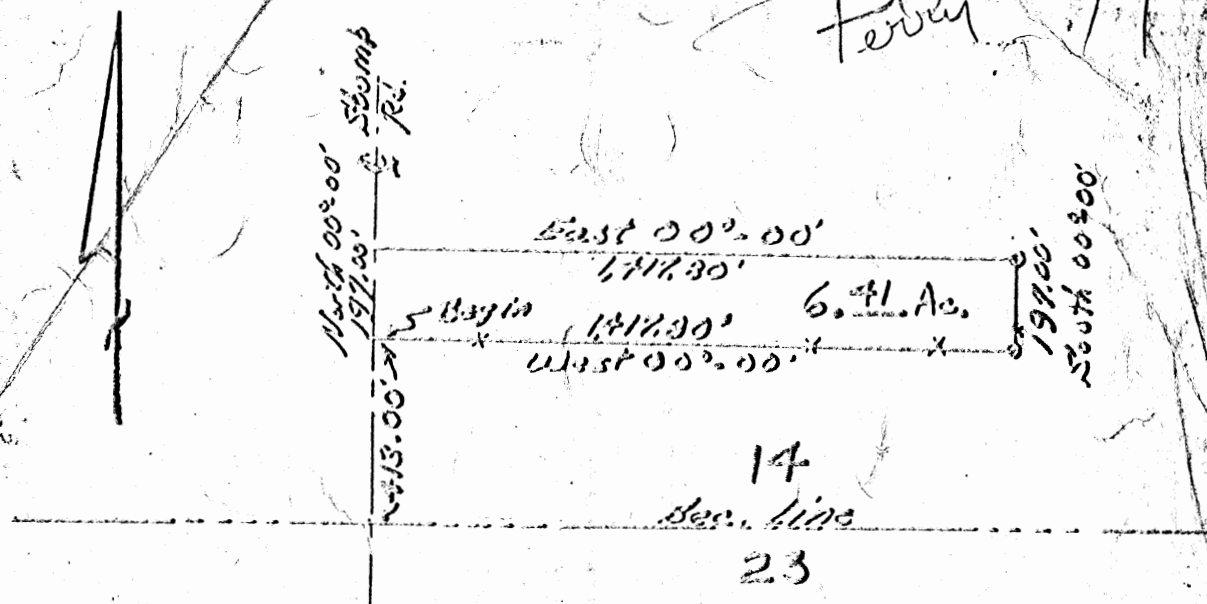 Perry
Stomp
Rd.
North 00°-00'
197.00'
East 00°-00'
1,417.30'
6.41.Ac.
Begin
1417.30'
West 00°-00'
197.00'
South 00°00'
413.00'
14
Sec. line
23